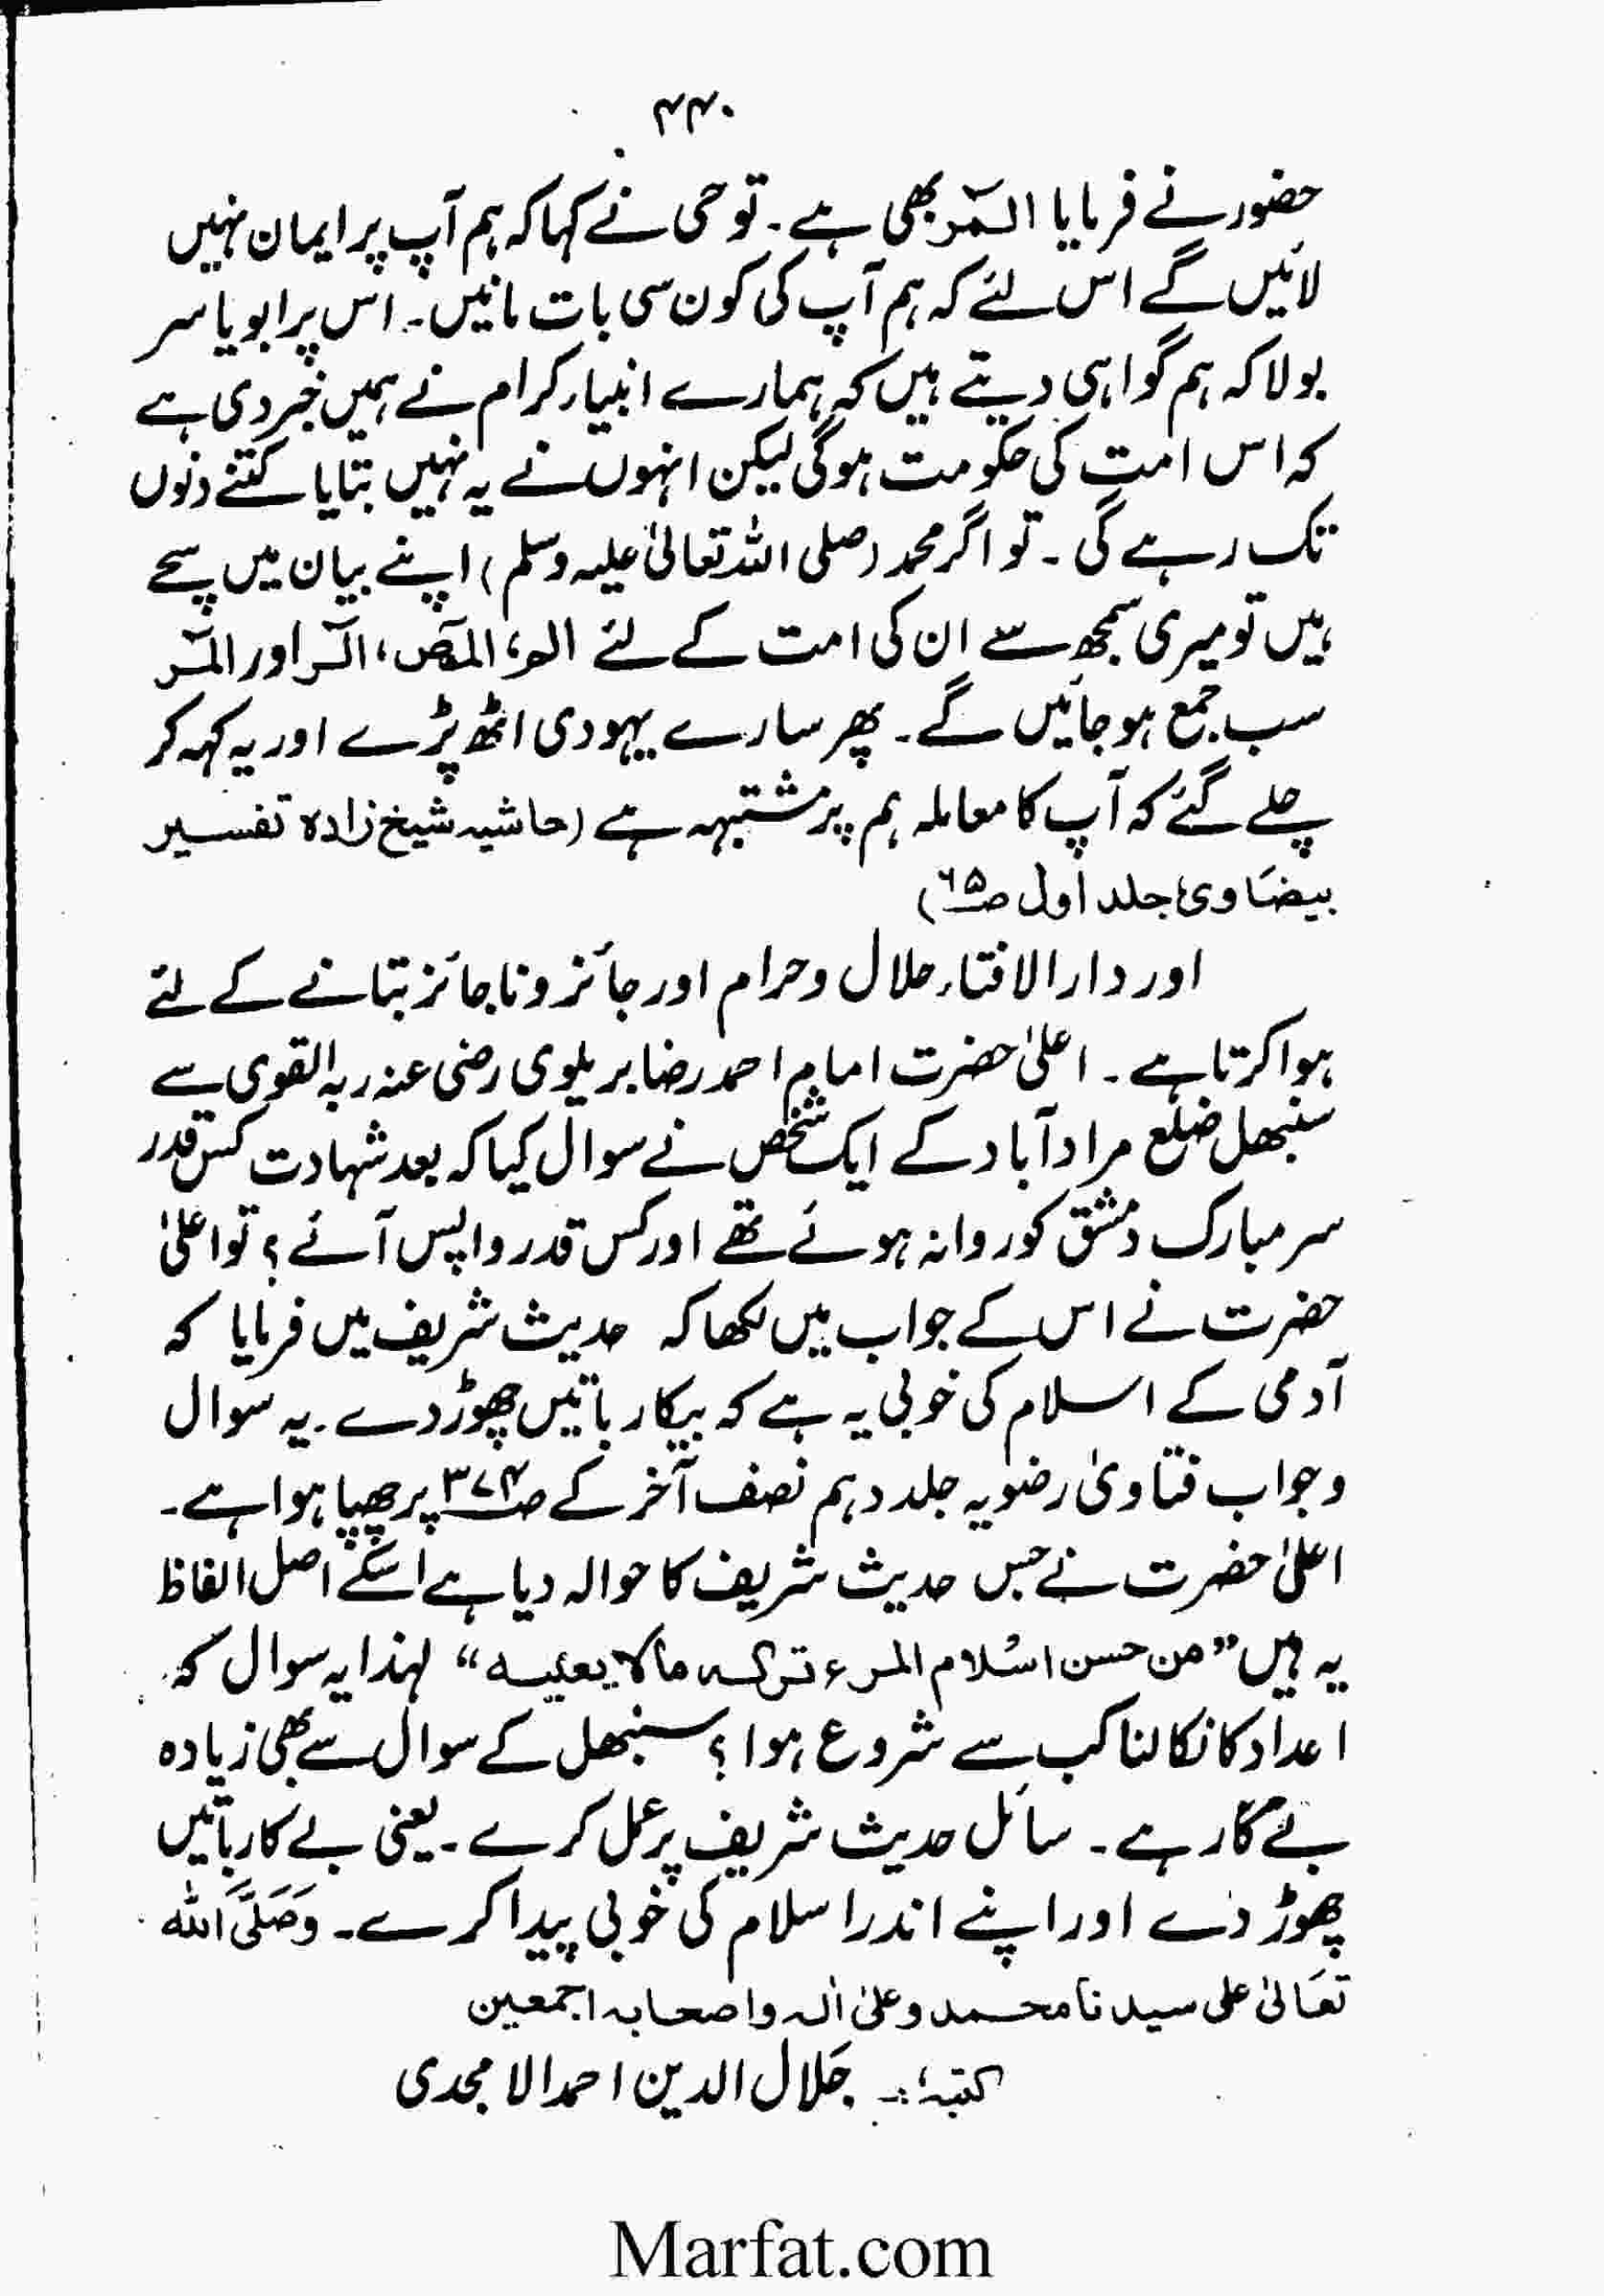 ۴۴۰
حضور نے فرمایا الٓمّٓر بھی ہے۔ تو حی نے کہا کہ ہم آپ پر ایمان نہیں
لائیں گے اس لئے کہ ہم آپ کی کون سی بات مانیں۔ اس پر ابو یاسر
بولا کہ ہم گواہی دیتے ہیں کہ ہمارے انبیاء کرام نے ہمیں خبر دی ہے
کہ اس امت کی حکومت ہوگی لیکن انہوں نے یہ نہیں بتایا کتنے دنوں
تک رہے گی۔ تو اگر محمد (صلی اللہ تعالیٰ علیہ وسلم) اپنے بیان میں سچے
ہیں تو میری سمجھ سے ان کی امت کے لئے الم، المص، الٓر اور المٓر
سب جمع ہو جائیں گے۔ پھر سارے یہودی اٹھ پڑے اور یہ کہہ کر
چلے گئے کہ آپ کا معاملہ ہم پر مشتبہ ہے (حاشیہ شیخ زادہ تفسیر
بیضاوی جلد اول ص۶۵)
اور دارالافتاء حلال و حرام اور جائز و ناجائز بتانے کے لئے
ہوا کرتا ہے۔ اعلیٰ حضرت امام احمد رضا بریلوی رضی عنہ ربہ القوی سے
سنبھل ضلع مراد آباد کے ایک شخص نے سوال کیا کہ بعد شہادت کس قدر
سر مبارک دمشق کو روانہ ہوئے تھے اور کس قدر واپس آئے؟ تو اعلیٰ
حضرت نے اس کے جواب میں لکھا کہ حدیث شریف میں فرمایا کہ
آدمی کے اسلام کی خوبی یہ ہے کہ بیکار باتیں چھوڑ دے۔ یہ سوال
و جواب فتاویٰ رضویہ جلد دہم نصف آخر کے ص۳۷۴ پر چھپا ہوا ہے۔
اعلیٰ حضرت نے جس حدیث شریف کا حوالہ دیا ہے اسکے اصل الفاظ
یہ ہیں ”من حسن اسلام المرء ترکہ مالا یعنیہ“ لہذا یہ سوال کہ
اعداد کا نکالنا کب سے شروع ہوا؟ سنبھل کے سوال سے بھی زیادہ
بے کار ہے۔ سائل حدیث شریف پر عمل کرے۔ یعنی بے کار باتیں
چھوڑ دے اور اپنے اندر اسلام کی خوبی پیدا کرے۔ وَصَلَّی اللہ
تعَالیٰ علی سیدنا محمد وعلیٰ اٰلہ واصحابہ اجمعین
کتبہٗ:۔ جلال الدین احمد الامجدی
Marfat.com